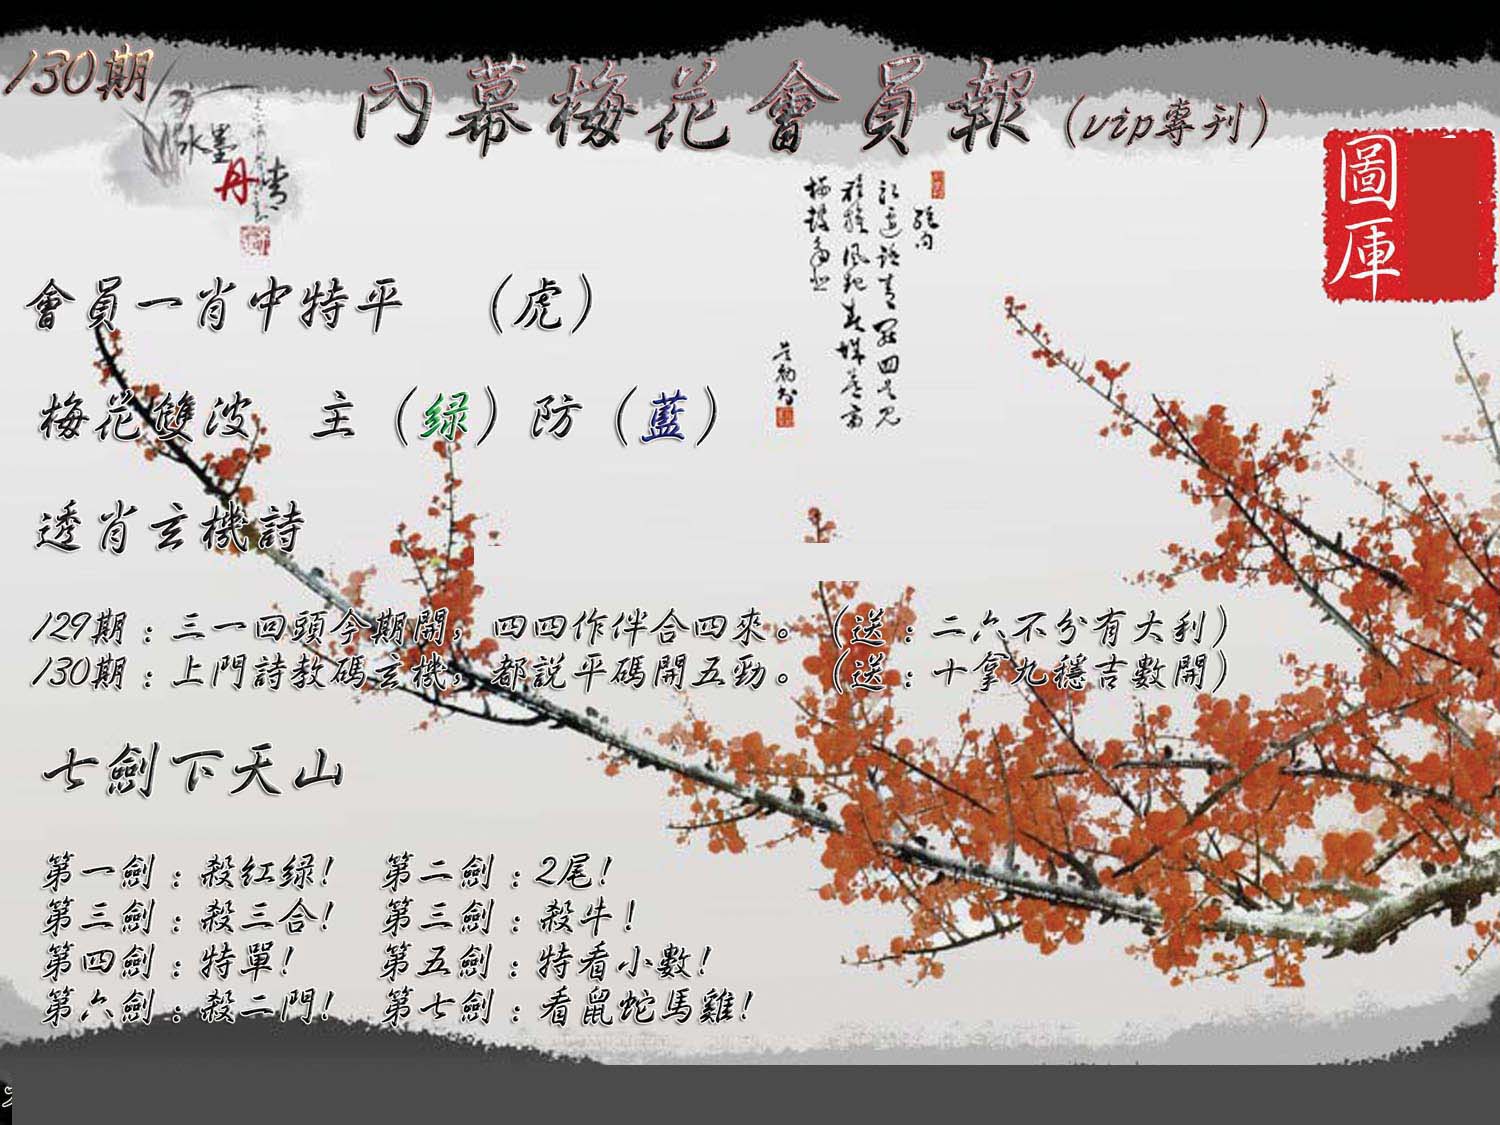 130期
內幕梅花會員報（vip專刊）
水墨
丹青
圖庫
會員一肖中特平　（虎）
梅花雙波　主（绿）防（藍）
透肖玄機詩
129期：三一回頭今期開，四四作伴合四來。（送：二六不分有大利）
130期：上門詩教碼玄機，都說平碼開五勁。（送：十拿九穩吉數開）
七劍下天山
第一劍：殺紅绿！　第二劍：2尾！
第三劍：殺三合！　第三劍：殺牛！
第四劍：特單！　第五劍：特看小數！
第六劍：殺二門！　第七劍：看鼠蛇馬雞！